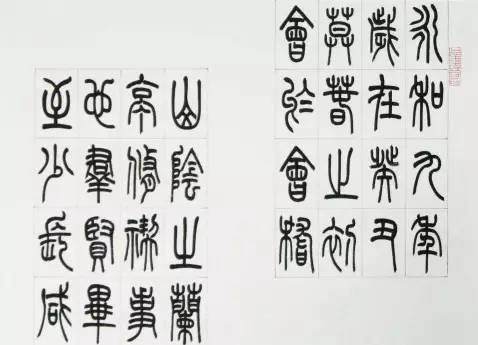 永和九年
歲在癸丑
莫春之初
會於會稽
山陰之蘭
亭修禊事
也羣賢畢
至少長咸